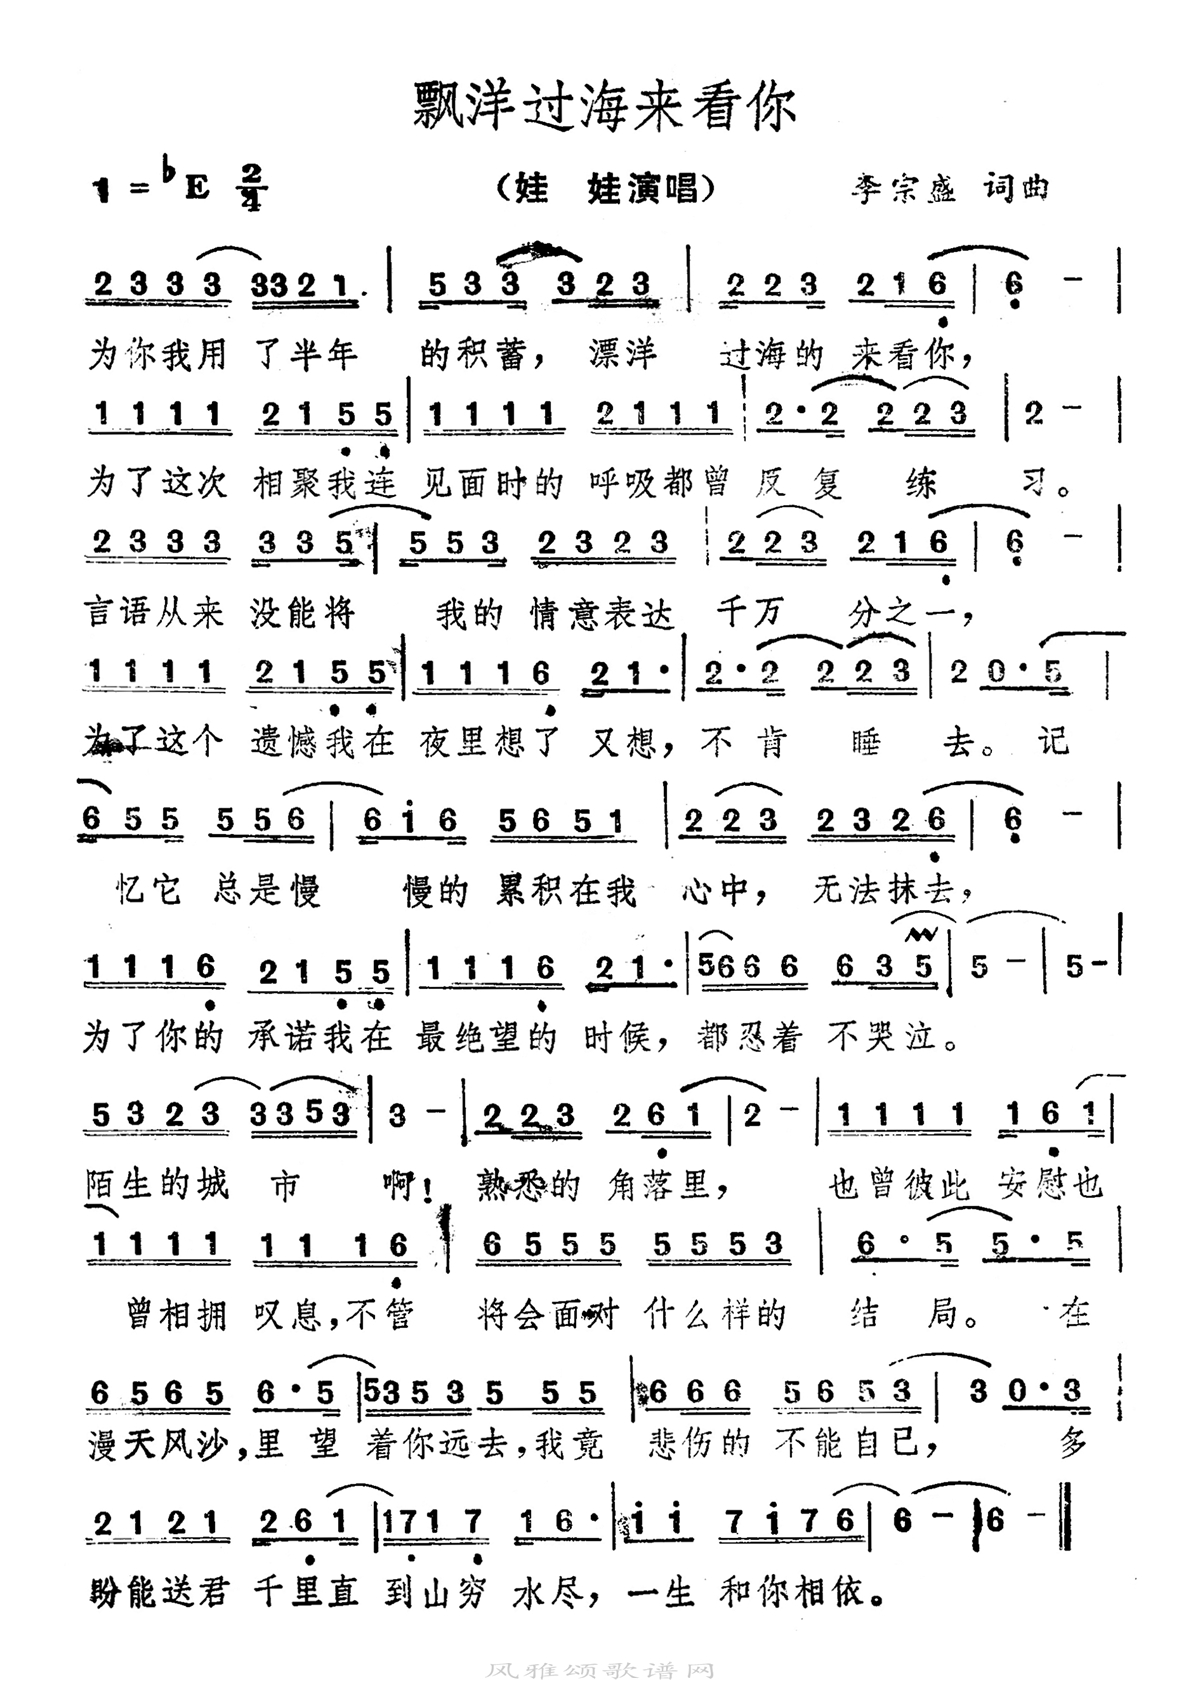 飘洋过海来看你
1=♭E 2/4 (娃 娃演唱) 李宗盛 词曲
2333 3321. | 533 323 | 223 216 | 6 - |
为你我用 了半年 的积蓄，漂洋 过海的 来看你，
1111 2155 | 1111 2111 | 2·2 223 | 2 - |
为了这次 相聚我连 见面时的 呼吸都曾 反复 练 习。
2333 335 | 553 2323 | 223 216 | 6 - |
言语从来 没能将 我的 情意表达 千万 分之一，
1111 2155 | 1116 21· | 2·2 223 | 2 0·5 |
为了这个 遗憾我在 夜里想了 又想，不肯 睡 去。记
655 556 | 6i6 5651 | 223 2326 | 6 - |
忆它 总是慢 慢的 累积在我 心中，无法抹去，
1116 2155 | 1116 21· | 56666 635 | 5 - | 5 - |
为了你的 承诺我在 最绝望的 时候，都忍着 不哭泣。
5323 3353 | 3 - | 223 261 | 2 - | 1111 161 |
陌生的城 市 啊！熟悉的 角落里， 也曾彼此 安慰也
1111 1116 | 6555 5553 | 6·5 5·5 |
曾相拥 叹息，不管 将会面对 什么样的 结 局。在
6565 6·5 | 53535 55 | 666 5653 | 3 0·3 |
漫天风沙，里 望 着你远去，我竟 悲伤的 不能自已， 多
2121 261 | 1717 16· | ii 7i76 | 6 - | 6 - ‖
盼能送君 千里直 到山穷 水尽，一生 和你相依。
风雅颂歌谱网